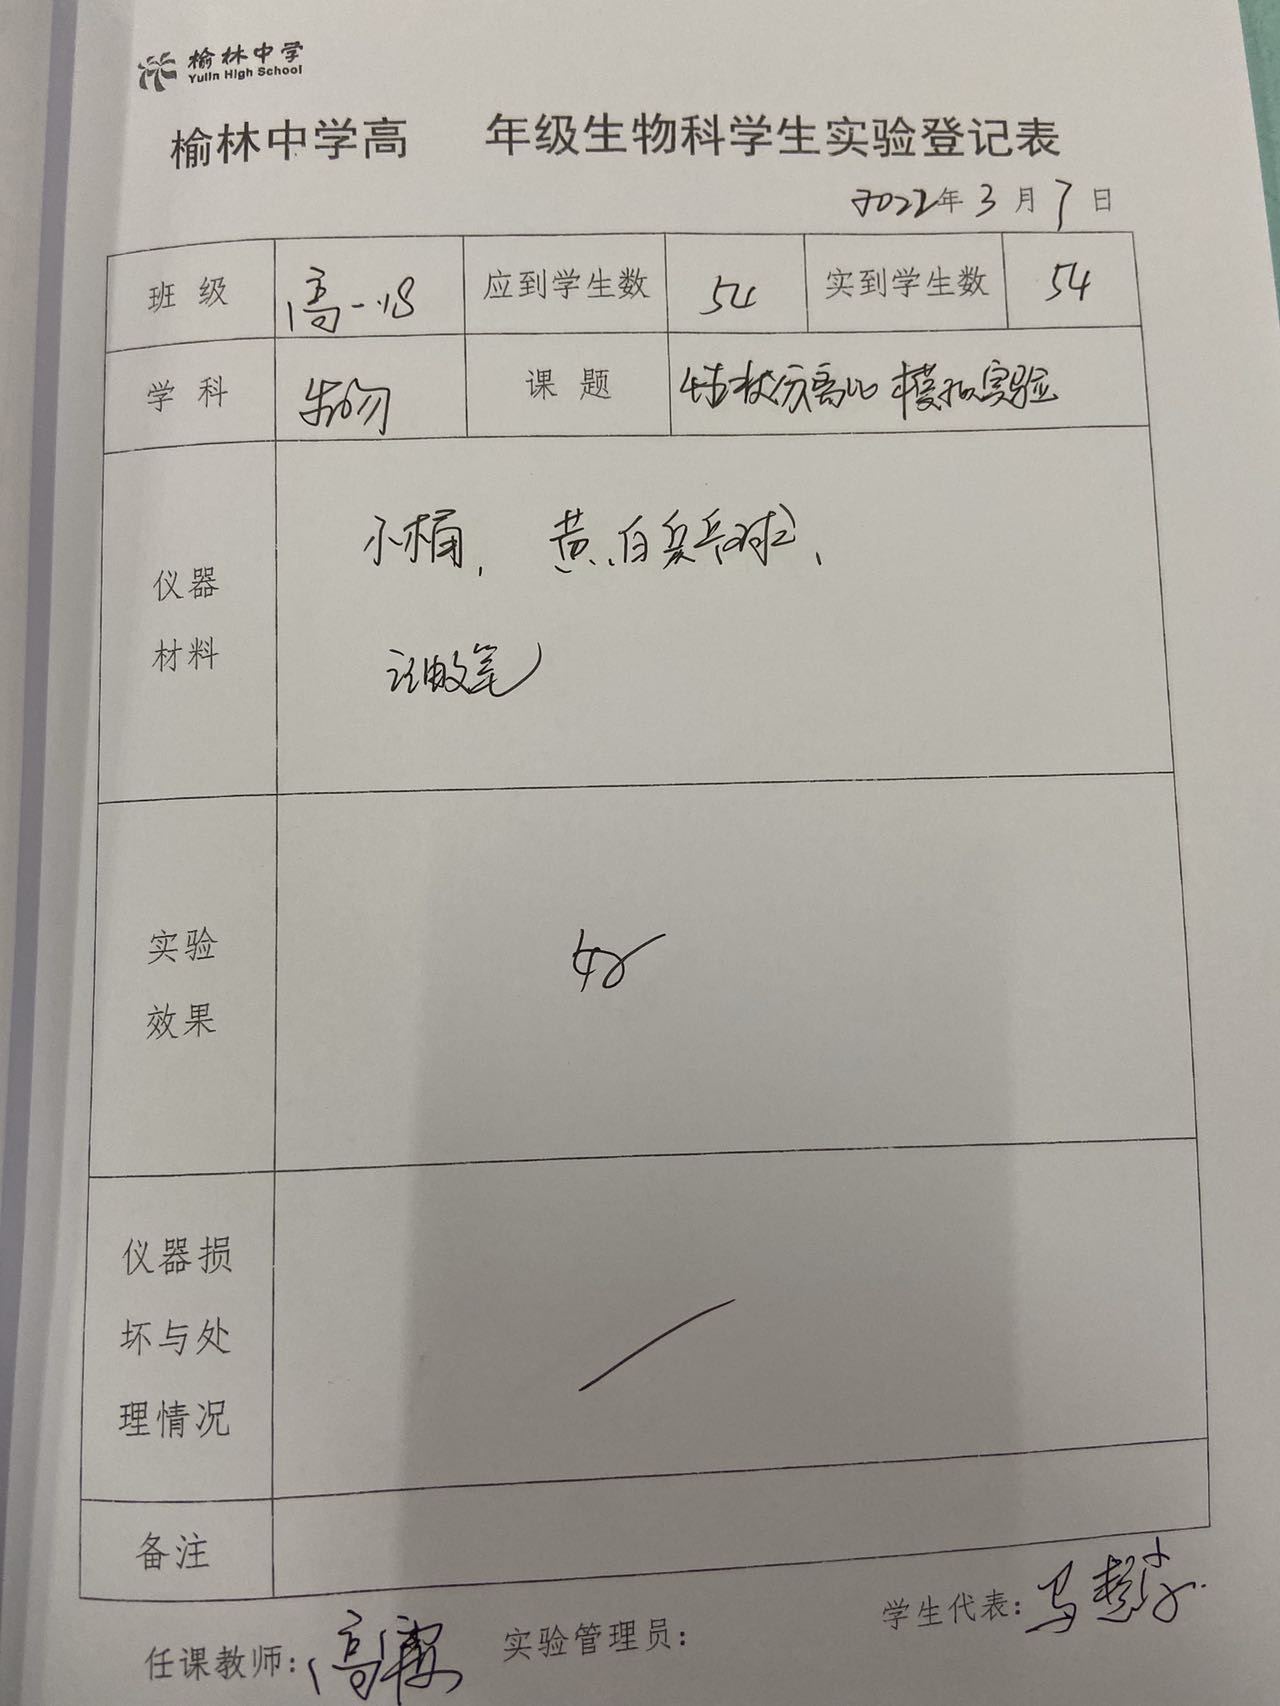 榆林中学
Yulin High School
榆林中学高 年级生物科学生实验登记表
2022年3月7日
班级 高一.18 应到学生数 54 实到学生数 54
学科 生物 课题 性状分离比模拟实验
仪器
材料
小桶, 黄、白乒乓球、
记号笔
实验
效果
好
仪器损
坏与处
理情况
备注
学生代表: 马
任课教师: 高霞 实验管理员: